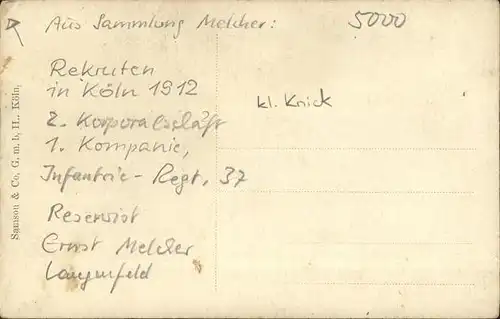 Aus Sammlung Melcher:
5000
Rekruten
in Köln 1912
2. Korporalschaft
1. Kompanie,
Infantrie-Regt. 37
Reservist
Ernst Melcher
Langenfeld
kl. Knick
Samson & Co, G. m. b, H., Köln,